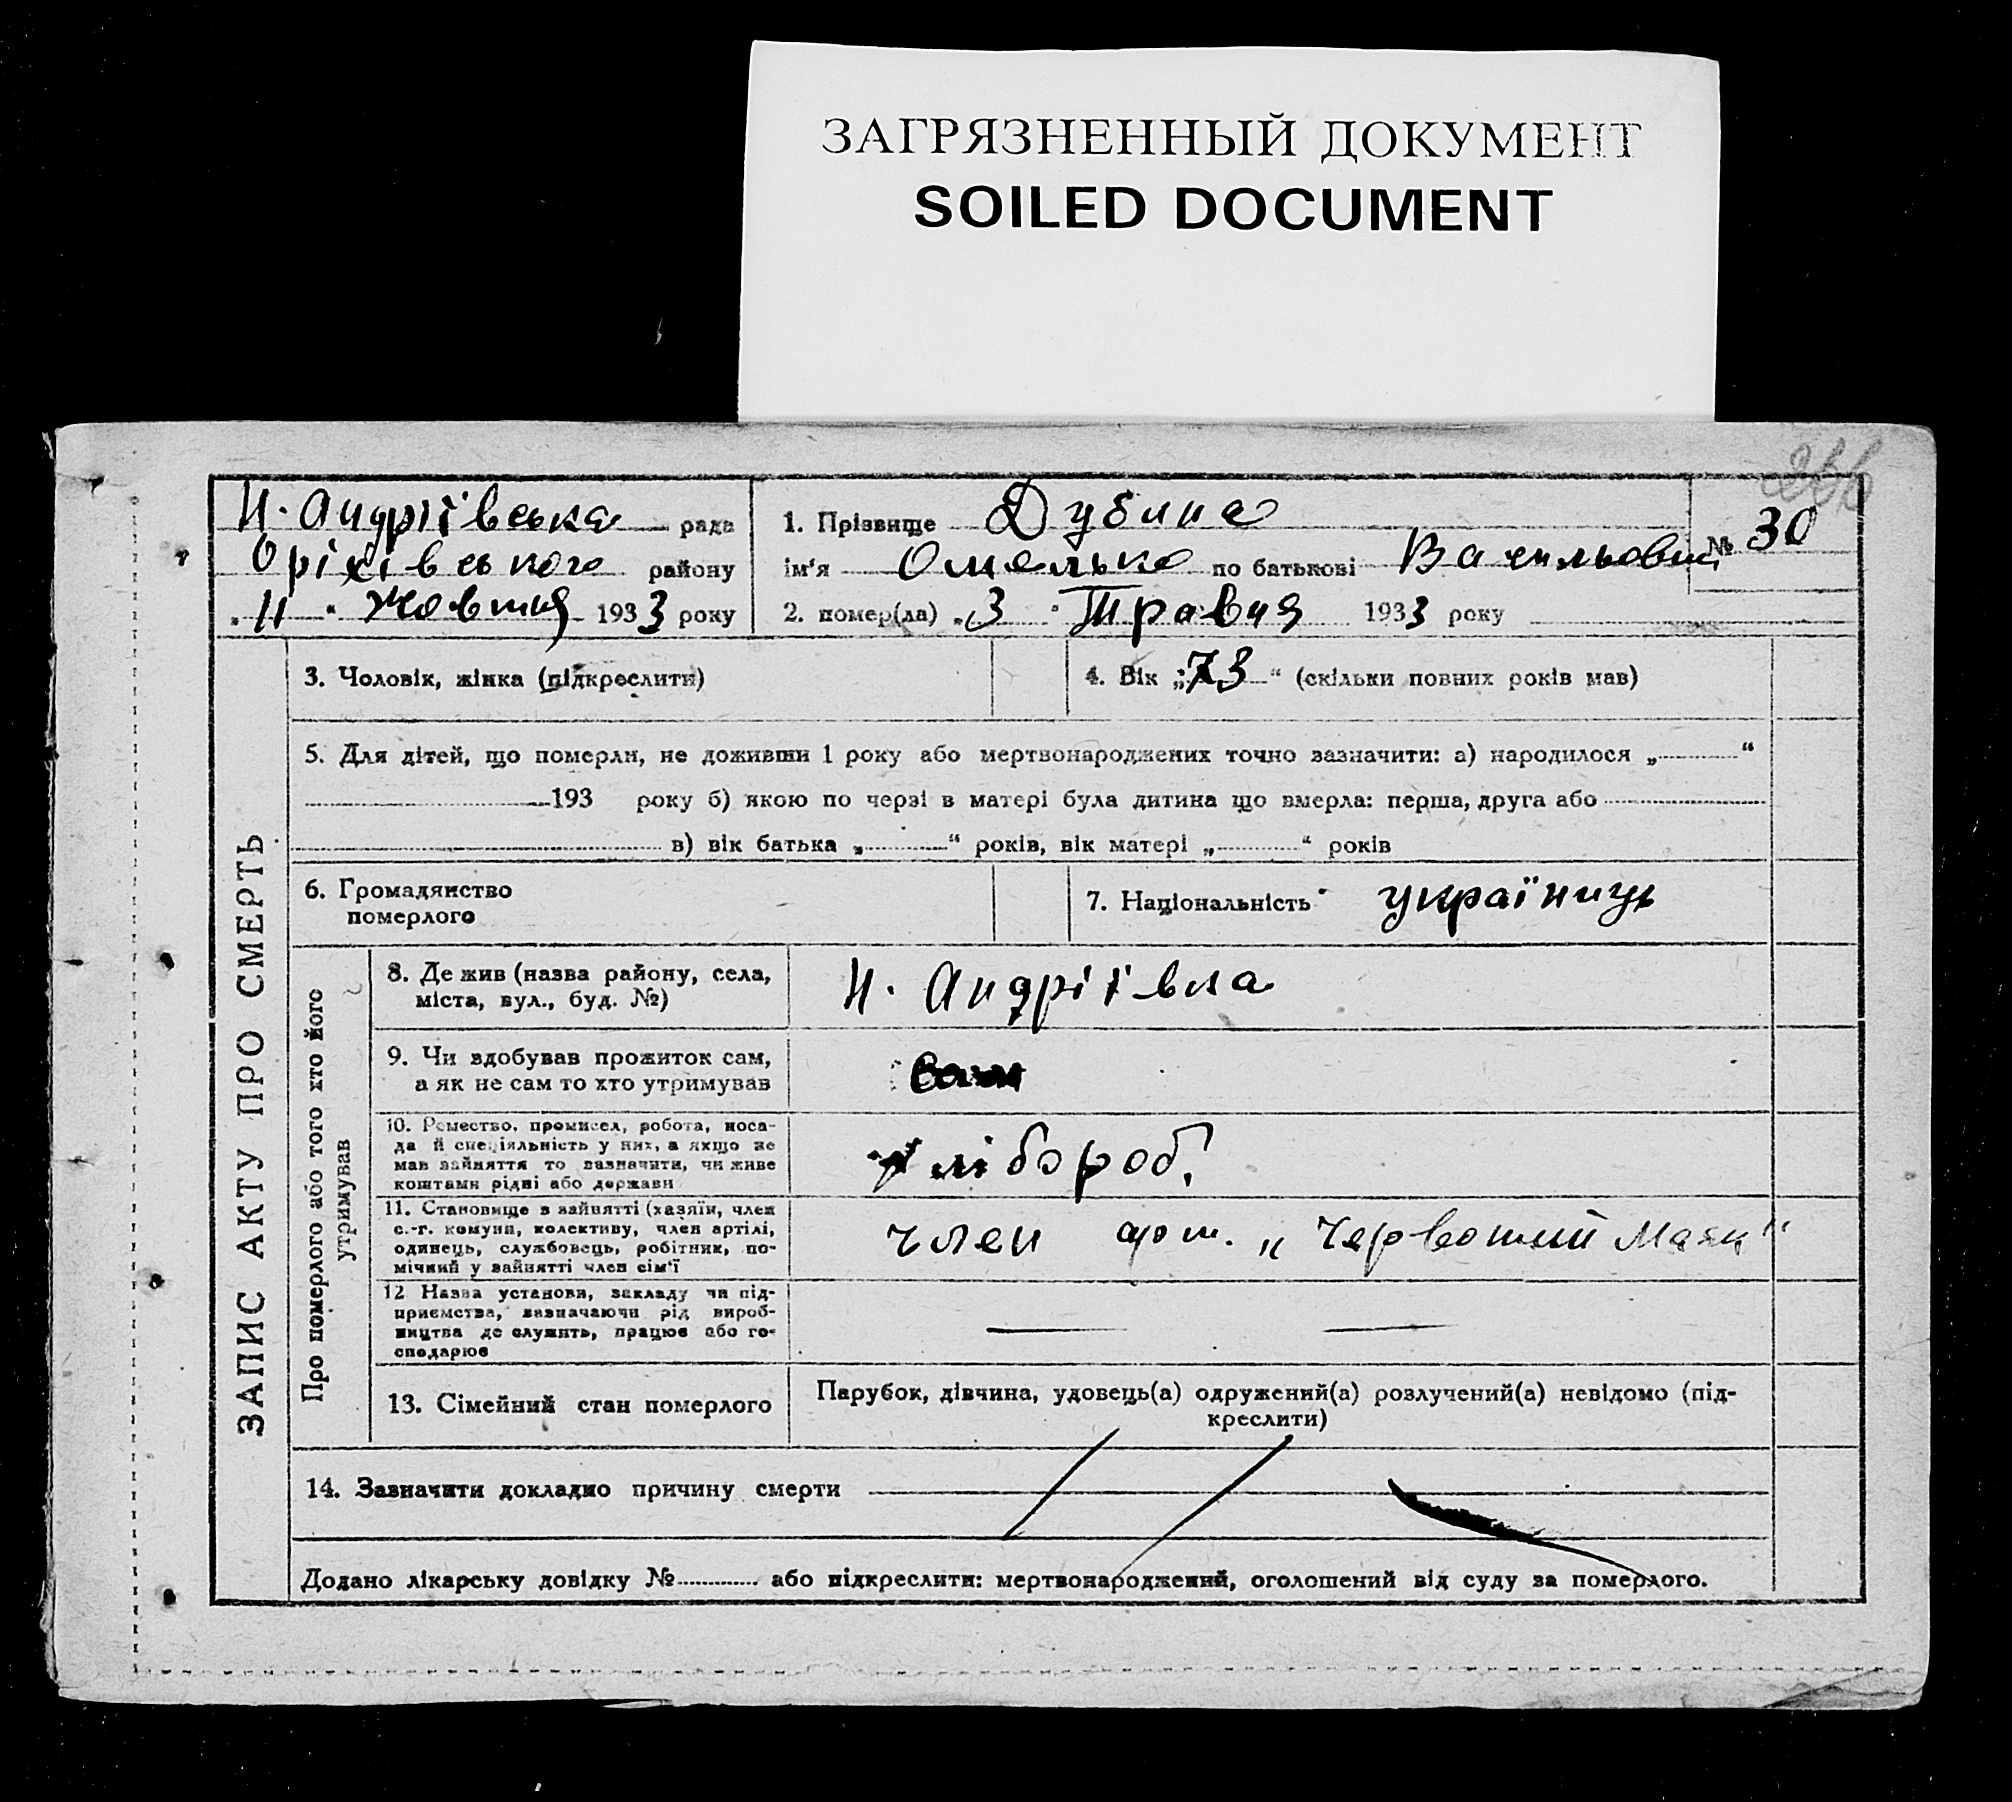 ЗАГРЯЗНЕННЫЙ ДОКУМЕНТ
SOILED DOCUMENT
Н. Андріївська рада
Оріхівського району
„ 11 " Жовтня 1933 року
1. Прізвище Дубина
ім'я Омелько по батькові Васильович
№ 30
2. помер(ла) „ 3 " Травня 1933 року
ЗАПИС АКТУ ПРО СМЕРТЬ
3. Чоловік, жінка (підкреслити)
4. Вік „73" (скільки повних років мав)
5. Для дітей, що померли, не доживши 1 року або мертвонароджених точно зазначити: а) народилося „ "
193 року б) якою по черзі в матері була дитина що вмерла: перша, друга або
в) вік батька „ " років, вік матері „ " років
6. Громадянство
померлого
7. Національність українць
Про померлого або того хто його
утримував
8. Де жив (назва району, села,
міста, вул., буд. №)
Н. Андріївка
9. Чи здобував прожиток сам,
а як не сам то хто утримував
10. Ремество, промисел, робота, поса-
да й спеціяльність у них, а якщо не
мав зайняття то зазначити, чи живе
коштами рідні або держави
хлібороб.
11. Становище в зайнятті (хазяїн, член
с.-г. комуни, колективу, член артілі,
одинець, службовець, робітник, по-
мічний у зайнятті член сім'ї
член арт. „Червоний Маяк"
12 Назва установи, закладу чи під-
приємства, зазначаючи рід вироб-
ництва де служить, працює або го-
сподарює
— —
13. Сімейний стан померлого
Парубок, дівчина, удовець(а) одружений(а) розлучений(а) невідомо (під-
креслити)
14. Зазначити докладно причину смерти
Додано лікарську довідку № або підкреслити: мертвонароджений, оголошений від суду за померлого.